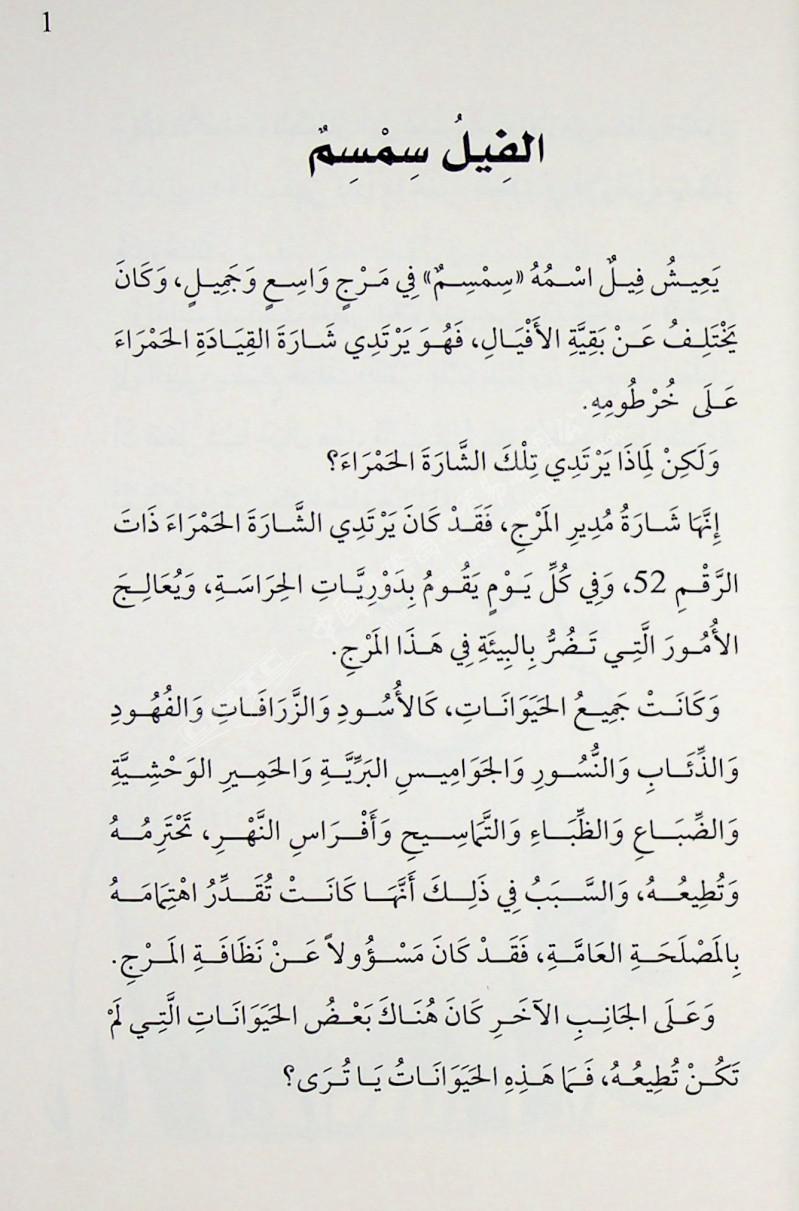 1
الفِيلُ سِمْسِمٌ
يَعِيشُ فِيلٌ اسْمُهُ «سِمْسِمٌ» فِي مَرْجٍ وَاسِعٍ وَجَمِيلٍ، وَكَانَ
يَخْتَلِفُ عَنْ بَقِيَّةِ الأَفْيَالِ، فَهُوَ يَرْتَدِي شَارَةَ القِيَادَةِ الحَمْرَاءَ
عَلَى خُرْطُومِهِ.
وَلَكِنْ لِمَاذَا يَرْتَدِي تِلْكَ الشَّارَةَ الحَمْرَاءَ؟
إِنَّهَا شَارَةُ مُدِيرِ المَرْجِ، فَقَدْ كَانَ يَرْتَدِي الشَّارَةَ الحَمْرَاءَ ذَاتَ
الرَّقْمِ 52، وَفِي كُلِّ يَوْمٍ يَقُومُ بِدَوْرِيَّاتِ الحِرَاسَةِ، وَيُعَالِجَ
الأُمُورَ الَّتِي تَضُرُّ بِالبِيئَةِ فِي هَذَا المَرْجِ.
وَكَانَتْ جَمِيعُ الحَيَوَانَاتِ، كَالأُسُودِ وَالزَّرَافَاتِ وَالفُهُودِ
وَالذِّئَابِ وَالنُّسُورِ وَالجَوَامِيسِ البَرِّيَّةِ وَالحَمِيرِ الوَحْشِيَّةِ
وَالضِّبَاعِ وَالظِّبَاءِ وَالتَّمَاسِيحِ وَأَفْرَاسِ النَّهْرِ، تَحْتَرِمُهُ
وَتُطِيعُهُ، وَالسَّبَبُ فِي ذَلِكَ أَنَّهَا كَانَتْ تُقَدِّرُ اهْتِمَامَهُ
بِالمَصْلَحَةِ العَامَّةِ، فَقَدْ كَانَ مَسْؤُولاً عَنْ نَظَافَةِ المَرْجِ.
وَعَلَى الجَانِبِ الآخَرِ كَانَ هُنَاكَ بَعْضُ الحَيَوَانَاتِ الَّتِي لَمْ
تَكُنْ تُطِيعُهُ، فَمَا هَذِهِ الحَيَوَانَاتُ يَا تُرَى؟